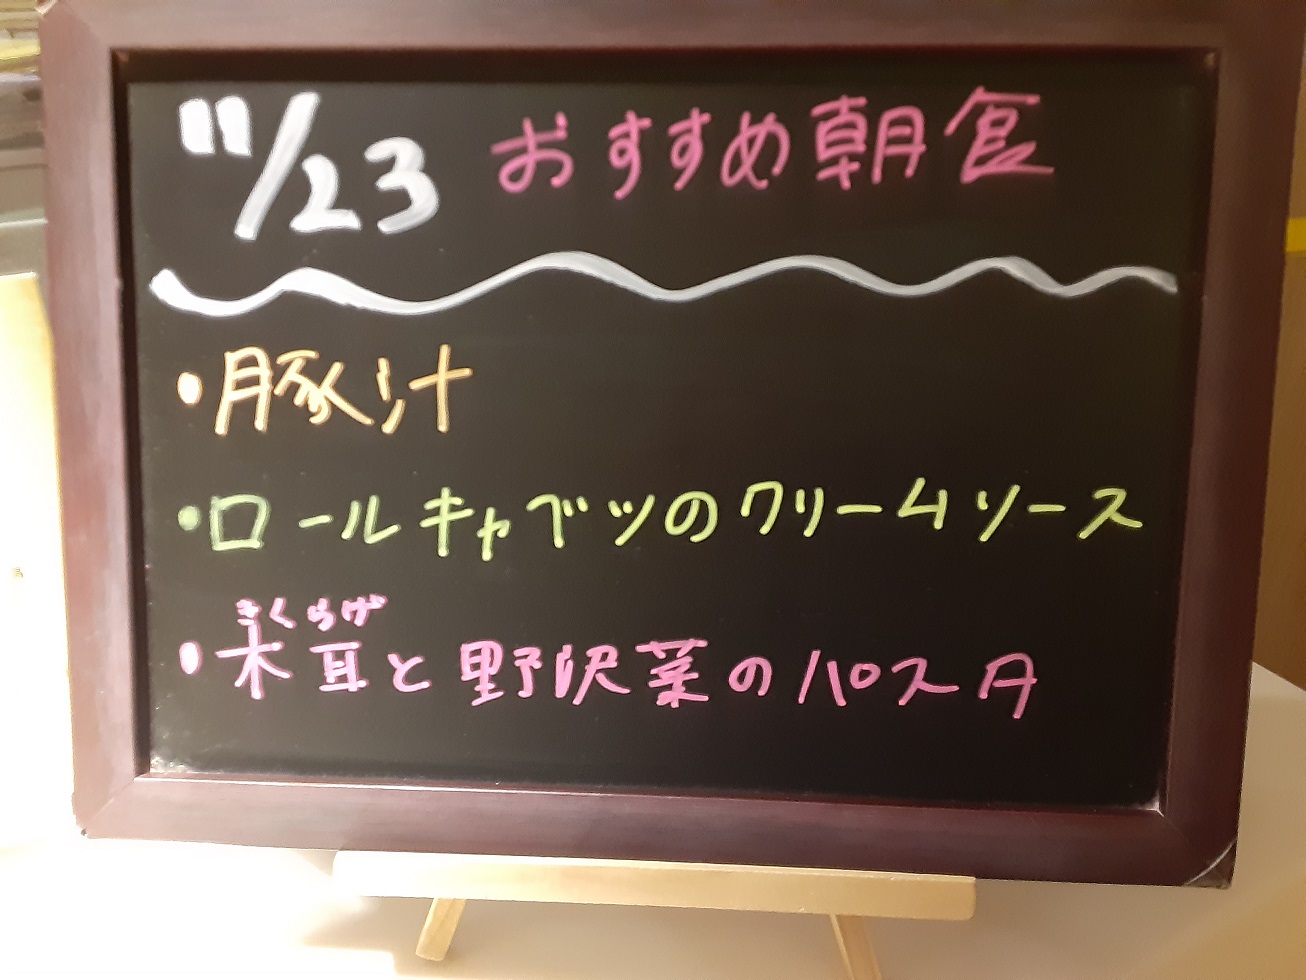 11/23 おすすめ朝食
・豚汁
・ロールキャベツのクリームソース
きくらげ
・木耳と野沢菜のパスタ